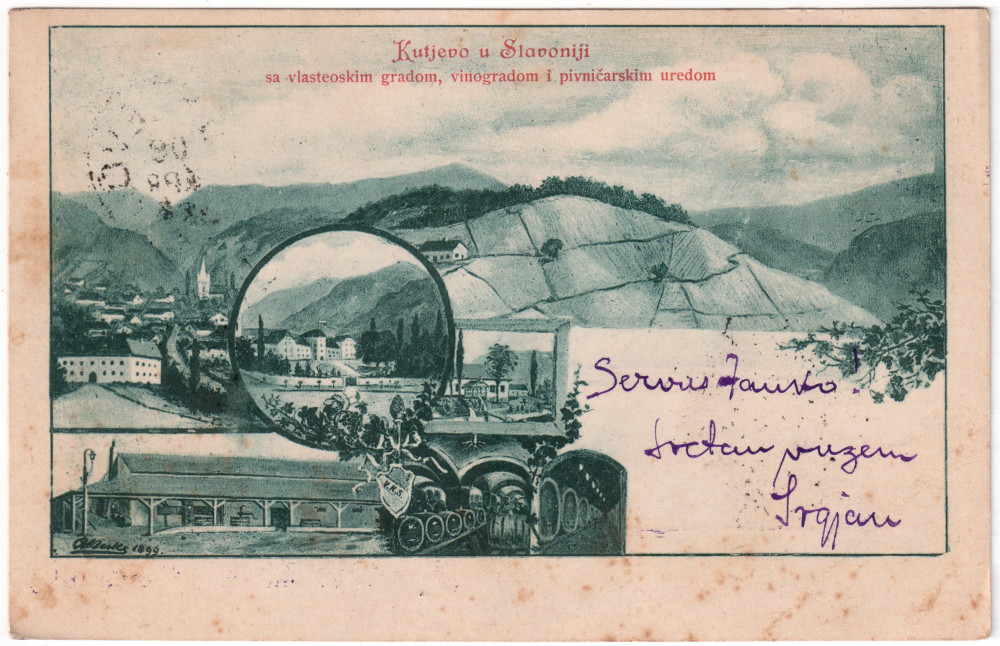 Kutjevo u Slavoniji
sa vlasteoskim gradom, vinogradom i pivničarskim uredom
Servus Fausto!
Sretan vuzem
Srgjan
V.K.S.
1899.